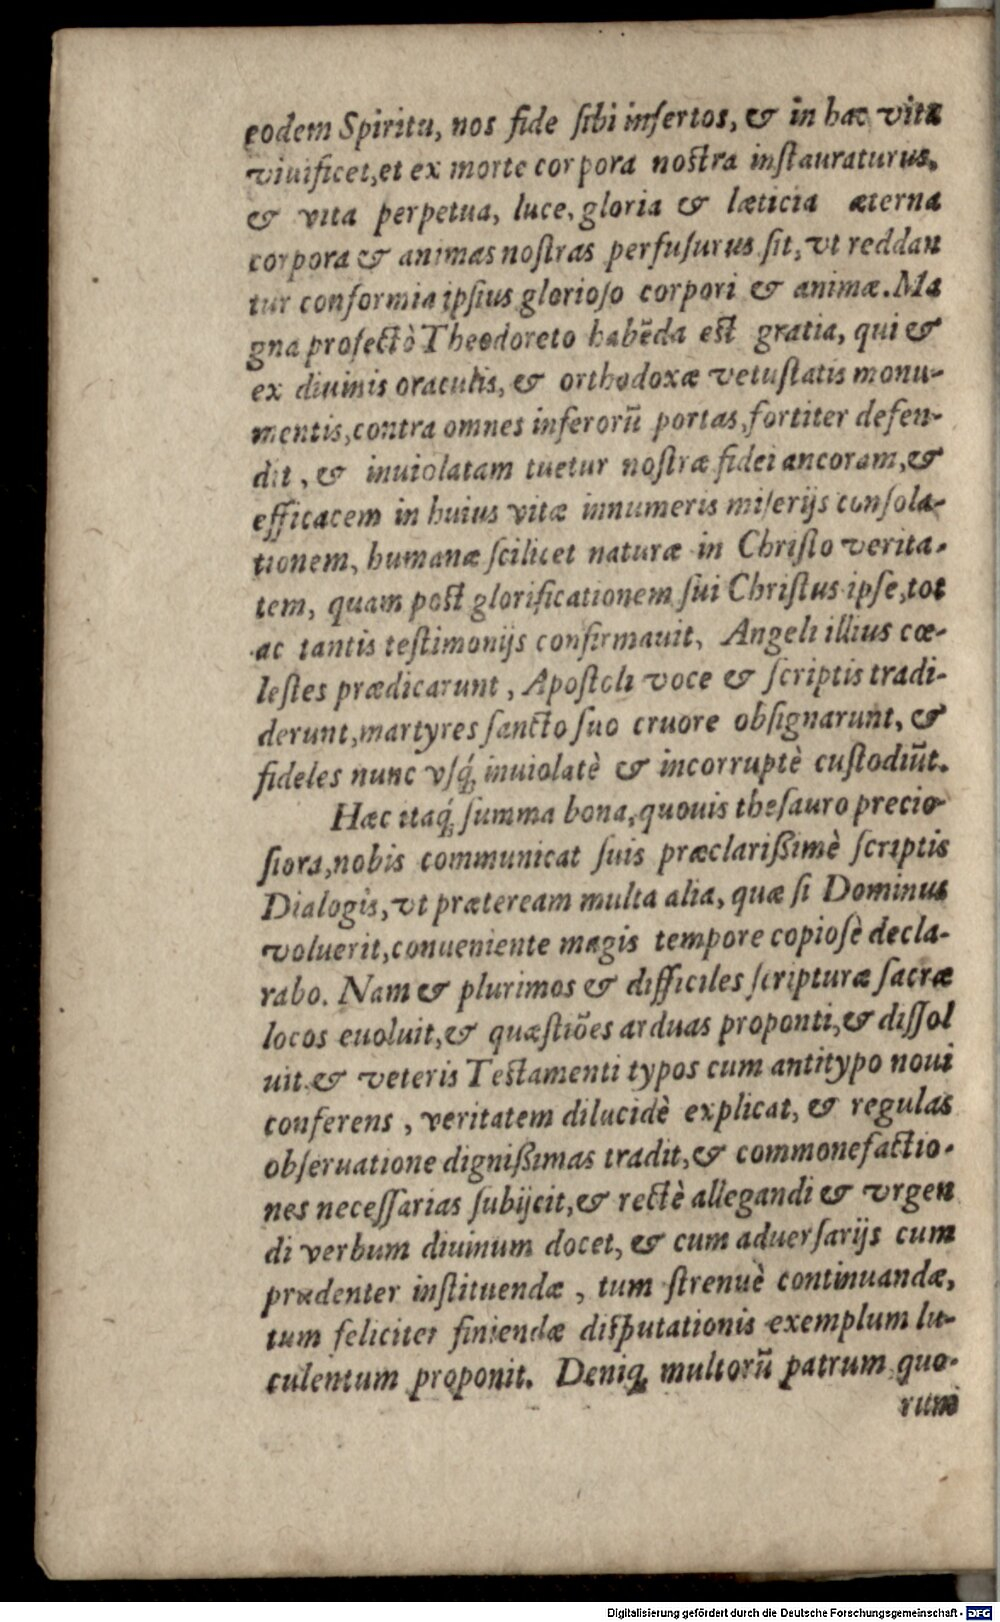 eodem Spiritu, nos fide ſibi inſertos, & in hac vita
viuificet,et ex morte corpora noſtra inſtauraturus,
& vita perpetua, luce, gloria & læticia æterna
corpora & animas noſtras perfuſurus ſit, vt reddan
tur conformia ipſius glorioſo corpori & animæ. Ma
gna profectò Theodoreto habẽda eſt gratia, qui &
ex diuinis oraculis, & orthodoxæ vetuſtatis monu-
mentis, contra omnes inferorũ portas, fortiter defen-
dit, & inuiolatam tuetur noſtræ fidei ancoram, &
efficacem in huius vitæ innumeris miſerijs conſola-
tionem, humanæ ſcilicet naturæ in Chriſto verita-
tem, quam poſt glorificationem ſui Chriſtus ipſe, tot
ac tantis teſtimonijs confirmauit, Angeli illius cœ-
leſtes prædicarunt, Apoſtoli voce & ſcriptis tradi-
derunt, martyres ſancto ſuo cruore obſignarunt, &
fideles nunc vſq́; inuiolatè & incorruptè cuſtodiũt.
Hæc itaq́; ſumma bona, quouis theſauro precio
ſiora, nobis communicat ſuis præclarißimè ſcriptis
Dialogis, vt præteream multa alia, quæ ſi Dominus
voluerit, conueniente magis tempore copioſè decla-
rabo. Nam & plurimos & difficiles ſcripturæ ſacræ
locos euoluit, & quæſtiões arduas proponti, & diſſol
uit & veteris Teſtamenti typos cum antitypo noui
conferens, veritatem dilucidè explicat, & regulas
obſeruatione dignißimas tradit, & commonefactio-
nes neceſſarias ſubijcit, & rectè allegandi & vrgen
di verbum diuinum docet, & cum aduerſarijs cum
prudenter inſtituendæ, tum ſtrenuè continuandæ,
tum feliciter finiendæ diſputationis exemplum lu-
culentum proponit. Deniq; multorũ patrum quo-
rum
Digitalisierung gefördert durch die Deutsche Forschungsgemeinschaft - DFG